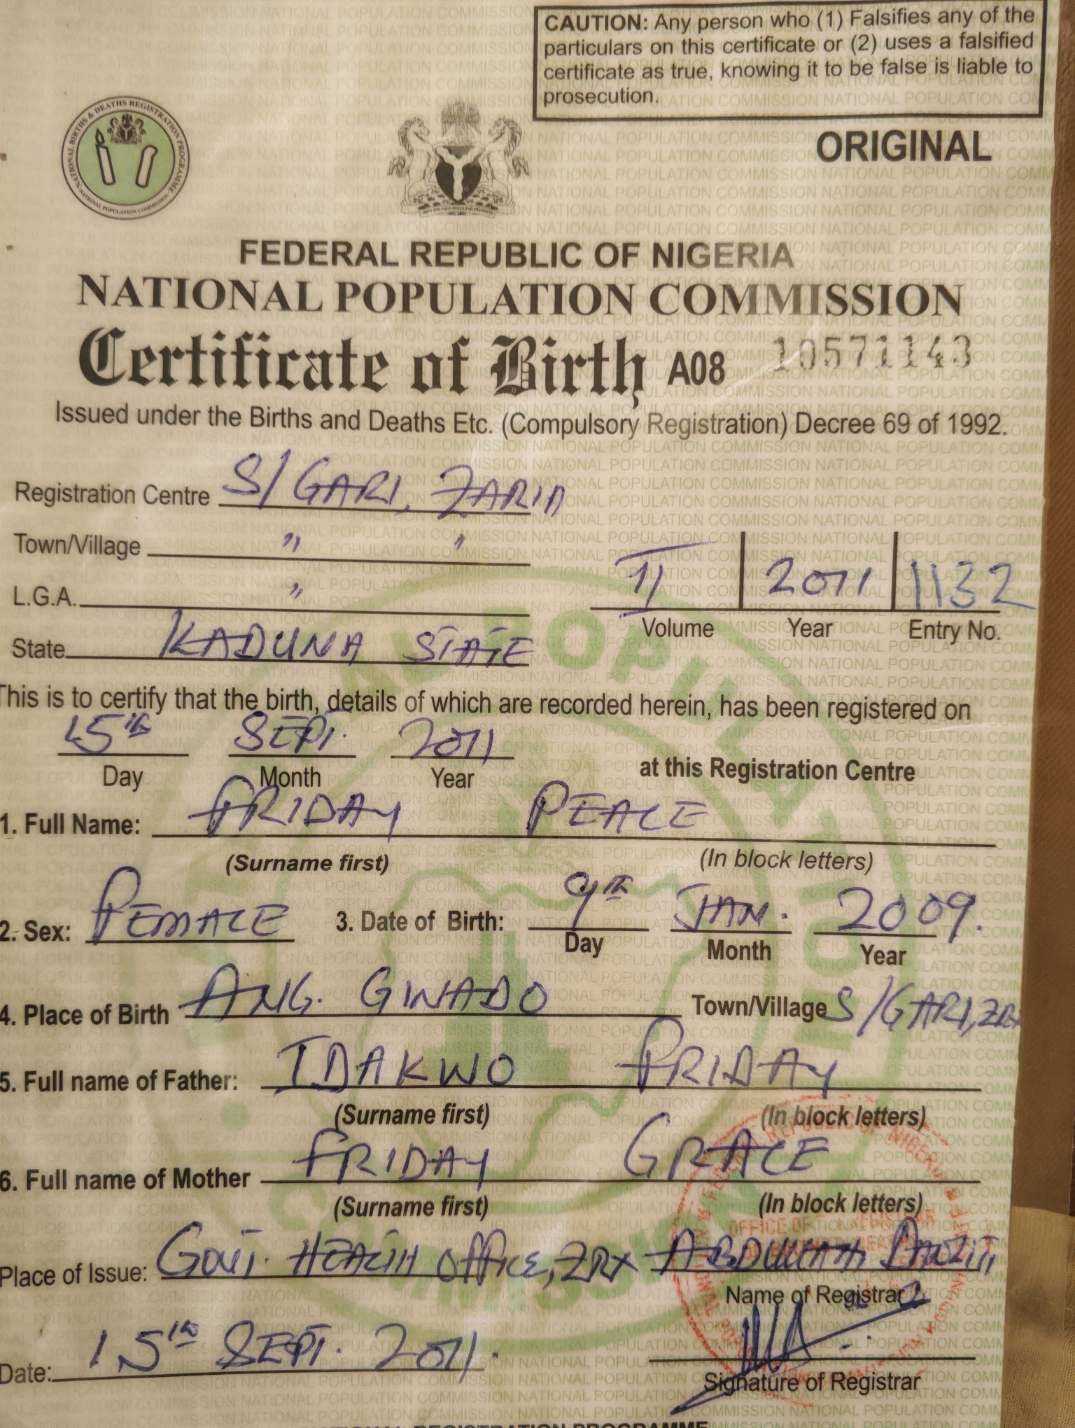 CAUTION: Any person who (1) Falsifies any of the
particulars on this certificate or (2) uses a falsified
certificate as true, knowing it to be false is liable to
prosecution.
ORIGINAL
FEDERAL REPUBLIC OF NIGERIA
NATIONAL POPULATION COMMISSION
Certificate of Birth A08 10571143
Issued under the Births and Deaths Etc. (Compulsory Registration) Decree 69 of 1992.
Registration Centre S/GARI, ZARIA
Town/Village " "
L.G.A. "
II 2011 1132
Volume Year Entry No.
State KADUNA STATE
This is to certify that the birth, details of which are recorded herein, has been registered on
15th SEPT. 2011
Day Month Year at this Registration Centre
1. Full Name: FRIDAY PEACE
(Surname first) (In block letters)
2. Sex: FEMALE 3. Date of Birth: 9th JAN. 2009.
Day Month Year
4. Place of Birth ANG. GWADO Town/Village S/GARI, ZRX
5. Full name of Father: IDAKWO FRIDAY
(Surname first) (In block letters)
6. Full name of Mother FRIDAY GRACE
(Surname first) (In block letters)
Place of Issue: GOVT. HEALTH OFFICE, ZRX
Name of Registrar
Date: 15th SEPT. 2011.
Signature of Registrar